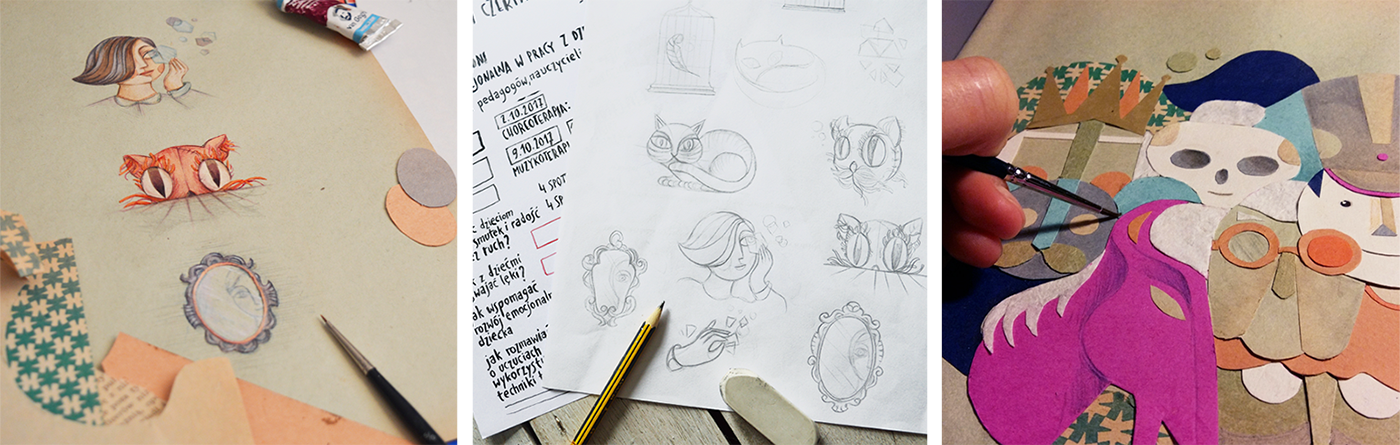 CZERW
JONALNA W PRACY Z DZ
pedagogów, nauczyciel
2.10.2017
CHOREOTERAPIA:
9.10.2017
MUZYKOTERAPI
4 SPOT
dzieciom
4 SP
smutek i radość
ruch?
z dziećmi
lęki?
ak wspomagać
rozwój emocjonaln
dziecka
jak rozmawia
o uczuciach
wykorzyst
techniki